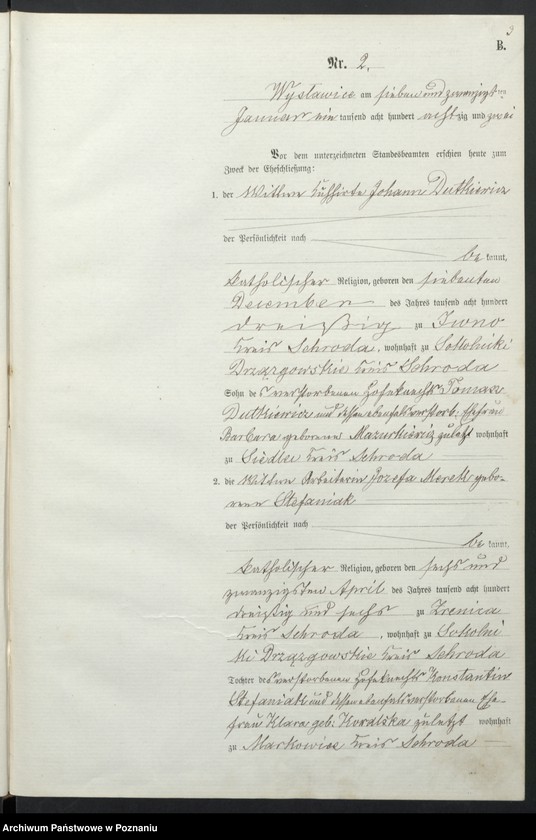 B.
Nr. 2.
Wysławice am sieben und zwanzigsten
Januar ein tausend acht hundert achtzig und zwei
Vor dem unterzeichneten Standesbeamten erschien heute zum
Zweck der Eheschließung:
1. der Wittwer Kuhhirte Johann Dutkiewicz
der Persönlichkeit nach
be kannt,
katholischer Religion, geboren den siebenten
December des Jahres tausend acht hundert
dreißig zu Iwno
Kreis Schroda, wohnhaft zu Sokolniki
Drzązgowskie Kreis Schroda
Sohn des verstorbenen Hofeknechts Tomasz
Dutkiewicz und dessen ebenfalls verstorb. Ehefrau
Barbara geborene Mazurkiewicz zuletzt wohnhaft
zu Siedlec Kreis Schroda
2. die Wittwe Arbeiterin Jozefa Marek gebo-
rene Stefaniak
der Persönlichkeit nach
be kannt,
katholischer Religion, geboren den sechs und
zwanzigsten April des Jahres tausend acht hundert
dreißig und sechs zu Zrenica
Kreis Schroda, wohnhaft zu Sokolni
ki Drzązgowskie Kreis Schroda
Tochter des verstorbenen Hofeknechts Konstantin
Stefaniak und dessen ebenfalls verstorbenen Ehe-
frau Klara geb. Kowalska zuletzt wohnhaft
zu Markowice Kreis Schroda
Archiwum Państwowe w Poznaniu